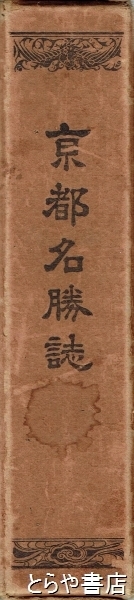 京都名勝誌
とらや書店